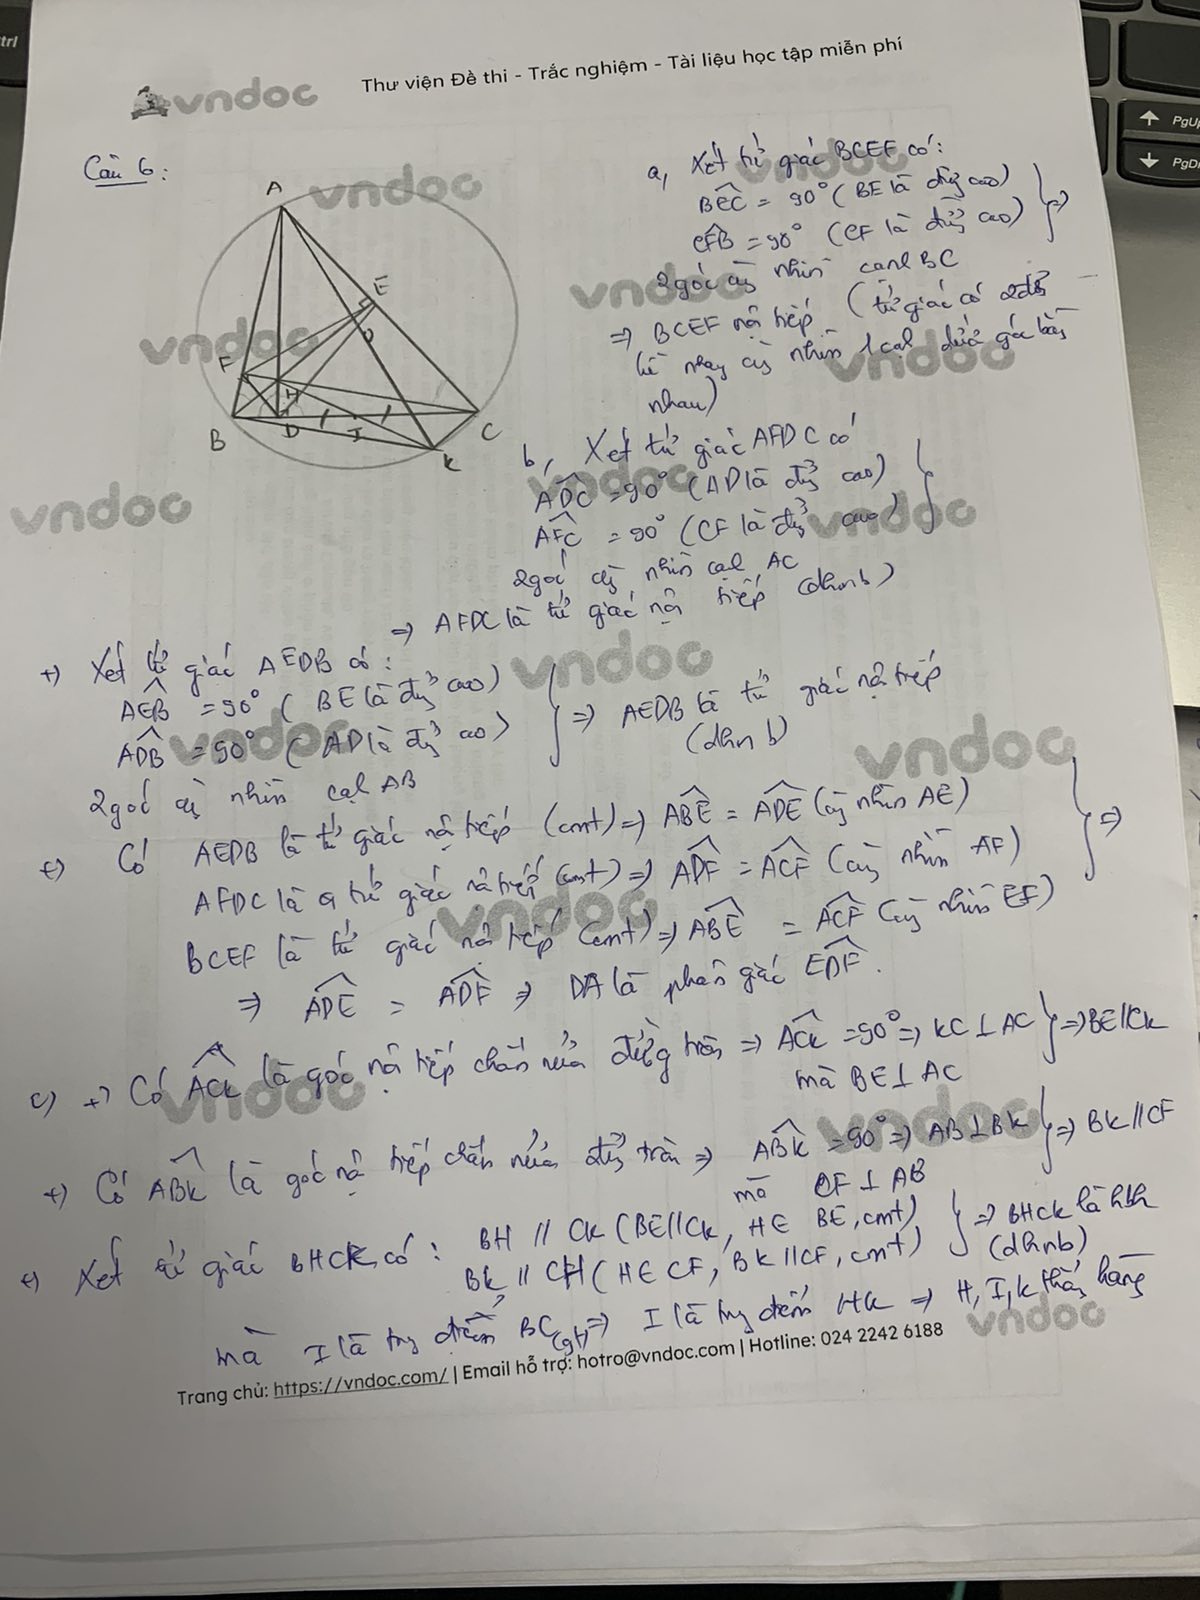 Ctrl
PgUp
PgDn
vndoc
Thư viện Đề thi - Trắc nghiệm - Tài liệu học tập miễn phí
Câu 6:
A
E
O
F
H
B
D
I
C
K
a, Xét tứ giác BCEF có:
BEC = 90° (BE là đg cao)
CFB = 90° (CF là đg cao) } ⇒
2 góc cùng nhìn cạnh BC
⇒ BCEF nội tiếp (tứ giác có 2 đỉnh
kề nhau cùng nhìn 1 cạnh dưới góc bằng
nhau)
b, Xét tứ giác AFDC có
ADC = 90° (AD là đg cao)
AFC = 90° (CF là đg cao) }
2 góc cùng nhìn cạnh AC
⇒ AFDC là tứ giác nội tiếp (dhnb)
+) Xét tứ giác AEDB có:
AEB = 90° (BE là đg cao)
ADB = 90° (AD là đg cao) } ⇒ AEDB là tứ giác nội tiếp
(dhnb)
2 góc cùng nhìn cạnh AB
+) Có AEDB là tứ giác nội tiếp (cmt) ⇒ ABE = ADE (cùng nhìn AE)
AFDC là tứ giác nội tiếp (cmt) ⇒ ADF = ACF (cùng nhìn AF) } ⇒
BCEF là tứ giác nội tiếp (cmt) ⇒ ABE = ACF (cùng nhìn EF)
⇒ ADE = ADF ⇒ DA là phân giác EDF.
c) +) Có ACK là góc nội tiếp chắn nửa đường tròn ⇒ ACK = 90° ⇒ KC ⊥ AC } ⇒ BE // CK
mà BE ⊥ AC
+) Có ABK là góc nội tiếp chắn nửa đg tròn ⇒ ABK = 90° ⇒ AB ⊥ BK } ⇒ BK // CF
mà CF ⊥ AB
+) Xét tứ giác BHCK có: BH // CK (BE // CK, H ∈ BE, cmt)
BK // CH (H ∈ CF, BK // CF, cmt) } ⇒ BHCK là hbh
(dhnb)
mà I là trg điểm BC (gt) ⇒ I là trg điểm HK ⇒ H, I, K thẳng hàng
Trang chủ: https://vndoc.com/ | Email hỗ trợ: hotro@vndoc.com | Hotline: 024 2242 6188